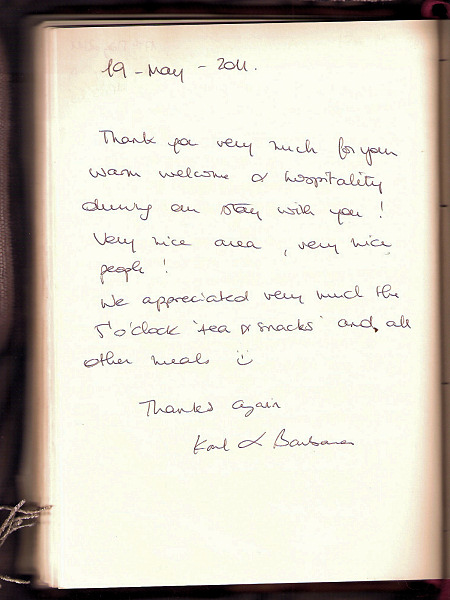 19 - May - 2011.
Thank you very much for your
warm welcome & hospitality
during our stay with you !
Very nice area , very nice
people !
We appreciated very much the
5 o'clock 'tea & snacks' and all
other meals ☺
Thanks again
Karl & Barbara